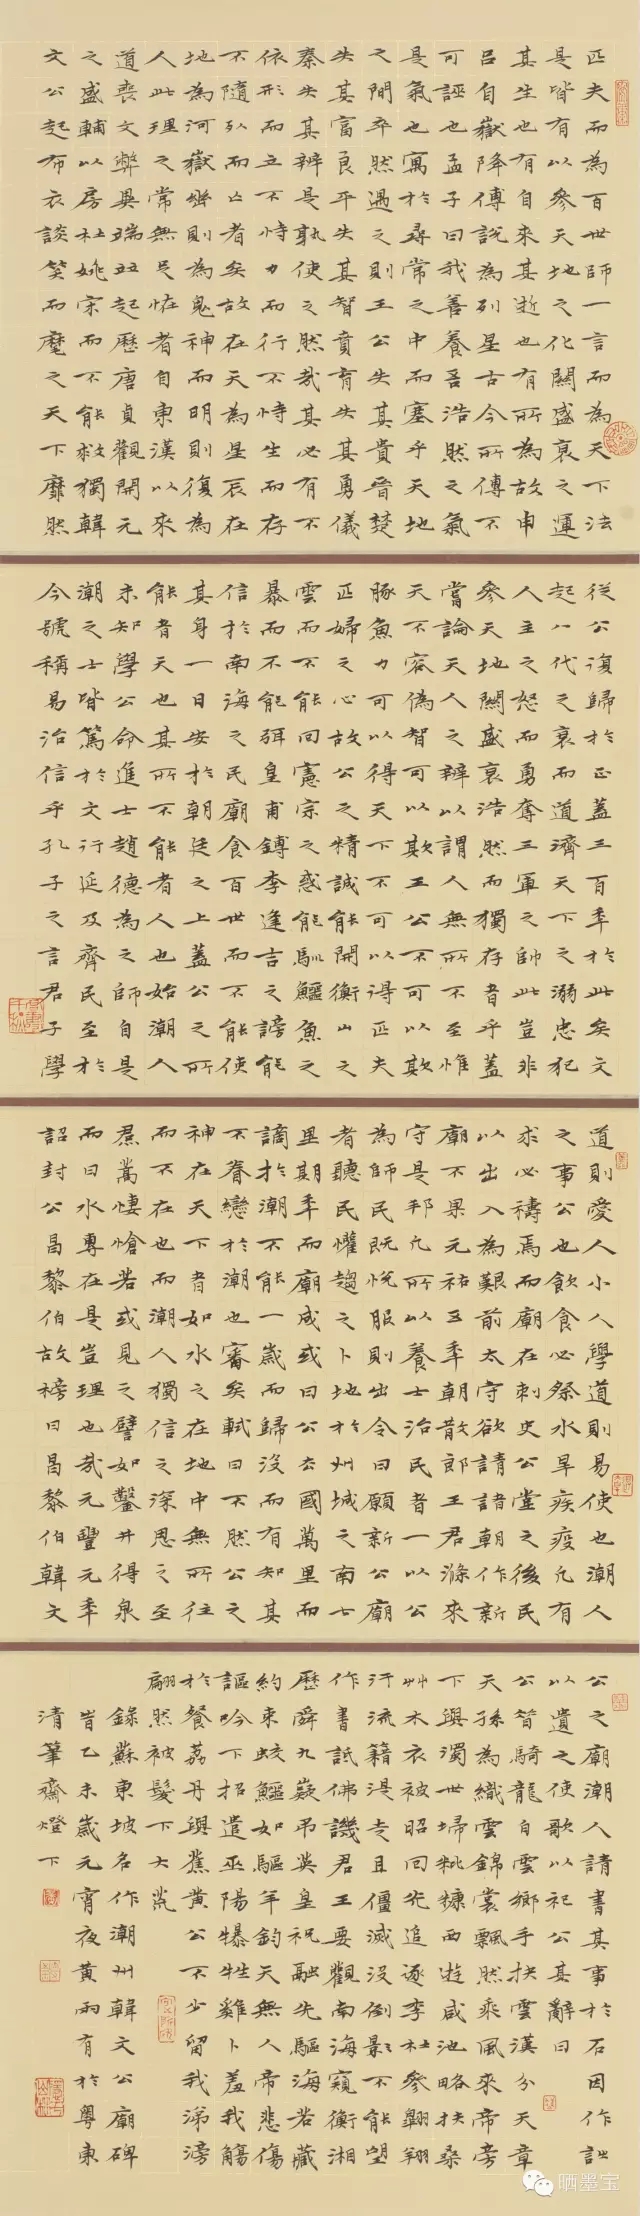 匹夫而為百世師一言而為天下法
是皆有以參天地之化關盛衰之運
其生也有自來其逝也有所為故申
呂自嶽降傅說為列星古今所傳不
可誣也孟子曰我善養吾浩然之氣
是氣也寓於尋常之中而塞乎天地
之間卒然遇之則王公失其貴晉楚
失其富良平失其智賁育失其勇儀
秦失其辨是孰使之然哉其必有不
依形而立不恃力而行不恃生而存
不隨死而亡者矣故在天為星辰在
地為河嶽幽則為鬼神而明則復為
人此理之常無足怪者自東漢以來
道喪文弊異端並起歷唐貞觀開元
之盛輔以房杜姚宋而不能救獨韓
文公起布衣談笑而麾之天下靡然
從公復歸於正蓋三百年於此矣文
起八代之衰而道濟天下之溺忠犯
人主之怒而勇奪三軍之帥此豈非
參天地關盛衰浩然而獨存者乎蓋
嘗論天人之辨以謂人無所不至惟
天不容偽智可以欺王公不可以欺
豚魚力可以得天下不可以得匹夫
匹婦之心故公之精誠能開衡山之
雲而不能回憲宗之惑能馴鱷魚之
暴而不能弭皇甫鎛李逢吉之謗能
信於南海之民廟食百世而不能使
其身一日安於朝廷之上蓋公之所
能者天也其所不能者人也始潮人
未知學公命進士趙德為之師自是
潮之士皆篤於文行延及齊民至於
今號稱易治信乎孔子之言君子學
道則愛人小人學道則易使也潮人
之事公也飲食必祭水旱疾疫凡有
求必禱焉而廟在刺史公堂之後民
以出入為艱前太守欲請諸朝作新
廟不果元祐五年朝散郎王君滌來
守是邦凡所以養士治民者一以公
為師民既悅服則出令曰願新公廟
者聽民懽趨之卜地於州城之南七
里期年而廟成或曰公去國萬里而
謫於潮不能一歲而歸沒而有知其
不眷戀於潮也審矣軾曰不然公之
神在天下者如水之在地中無所往
而不在也而潮人獨信之深思之至
焄蒿悽愴若或見之譬如鑿井得泉
而曰水專在是豈理也哉元豐元年
詔封公昌黎伯故榜曰昌黎伯韓文
公之廟潮人請書其事於石因作詩
以遺之使歌以祀公其辭曰
公昔騎龍白雲鄉手抉雲漢分天章
天孫為織雲錦裳飄然乘風來帝旁
下與濁世掃粃糠西遊咸池略扶桑
艸木衣被昭回光追逐李杜參翱翔
汗流籍湜走且僵滅沒倒影不能望
作書詆佛譏君王要觀南海窺衡湘
歷舜九嶷弔英皇祝融先驅海若藏
約束蛟鱷如驅羊鈞天無人帝悲傷
謳吟下招遣巫陽犦牲雞卜羞我觴
於餐荔丹與蕉黃公不少留我涕滂
翩然被髮下大荒
錄蘇東坡名作潮州韓文公廟碑
旹乙未歲元宵夜黃雨有於粵東
清筆齋燈下
晒墨宝